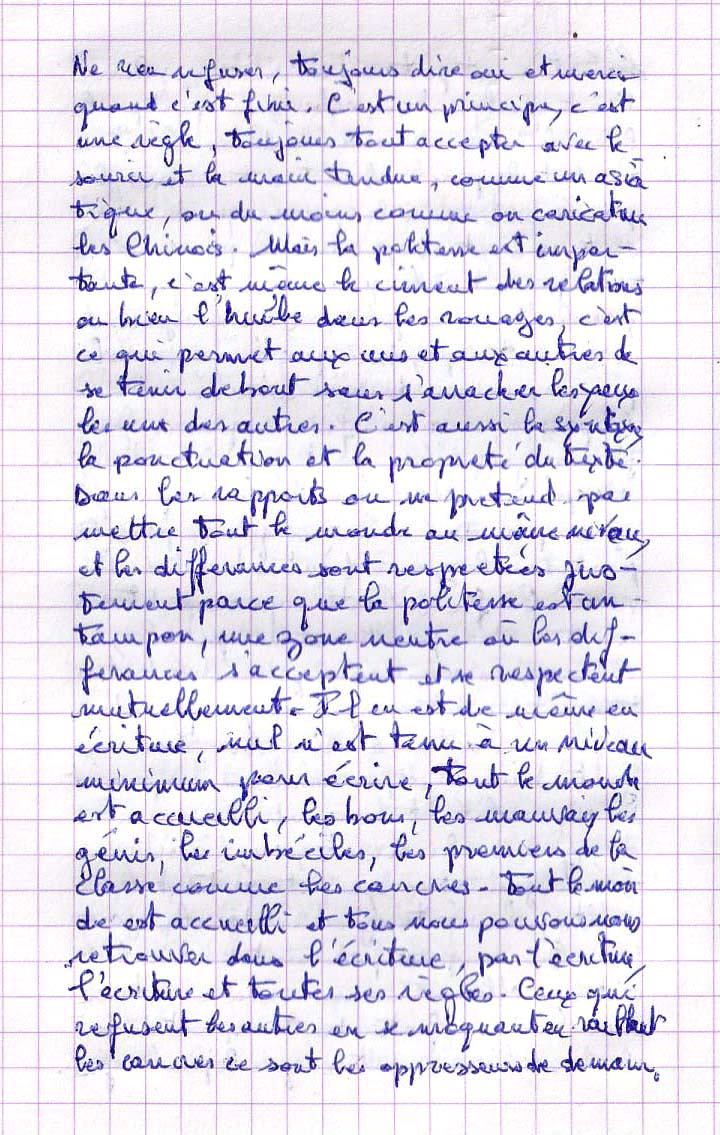 Ne rien refuser, toujours dire oui et merci
quand c'est fini. C'est un principe, c'est
une règle, toujours tout accepter avec le
sourir et la main tendue, comme un asia
tique, ou du moins comme on caricature
les Chinois. Mais la politesse est impor-
tante, c'est même le ciment des relations
ou bien l'huile dans les rouages, c'est
ce qui permet aux uns et aux autres de
se tenir debout sans s'arracher les yeux
les uns des autres. C'est aussi la syntaxe,
la ponctuation et la propreté du texte.
Dans les rapports on ne prétend pas
mettre tout le monde au même niveau,
et les différances sont respectées jus-
tement parce que la politesse est un
tampon, une zone neutre où les dif-
férances s'acceptent et se respectent
mutuellement. Il en est de même en
écriture, nul n'est tenu à un niveau
minimum pour écrire, tout le monde
est accueilli, les bons, les mauvais, les
génis, les imbéciles, les premiers de la
classe comme les cancres. Tout le mon
de est accueilli et tous nous pouvons nous
retrouver dans l'écriture, par l'écriture,
l'écriture et toutes ses règles. Ceux qui
refusent les autres en se moquant en raillant
les cancres ce sont les oppresseurs de demain.